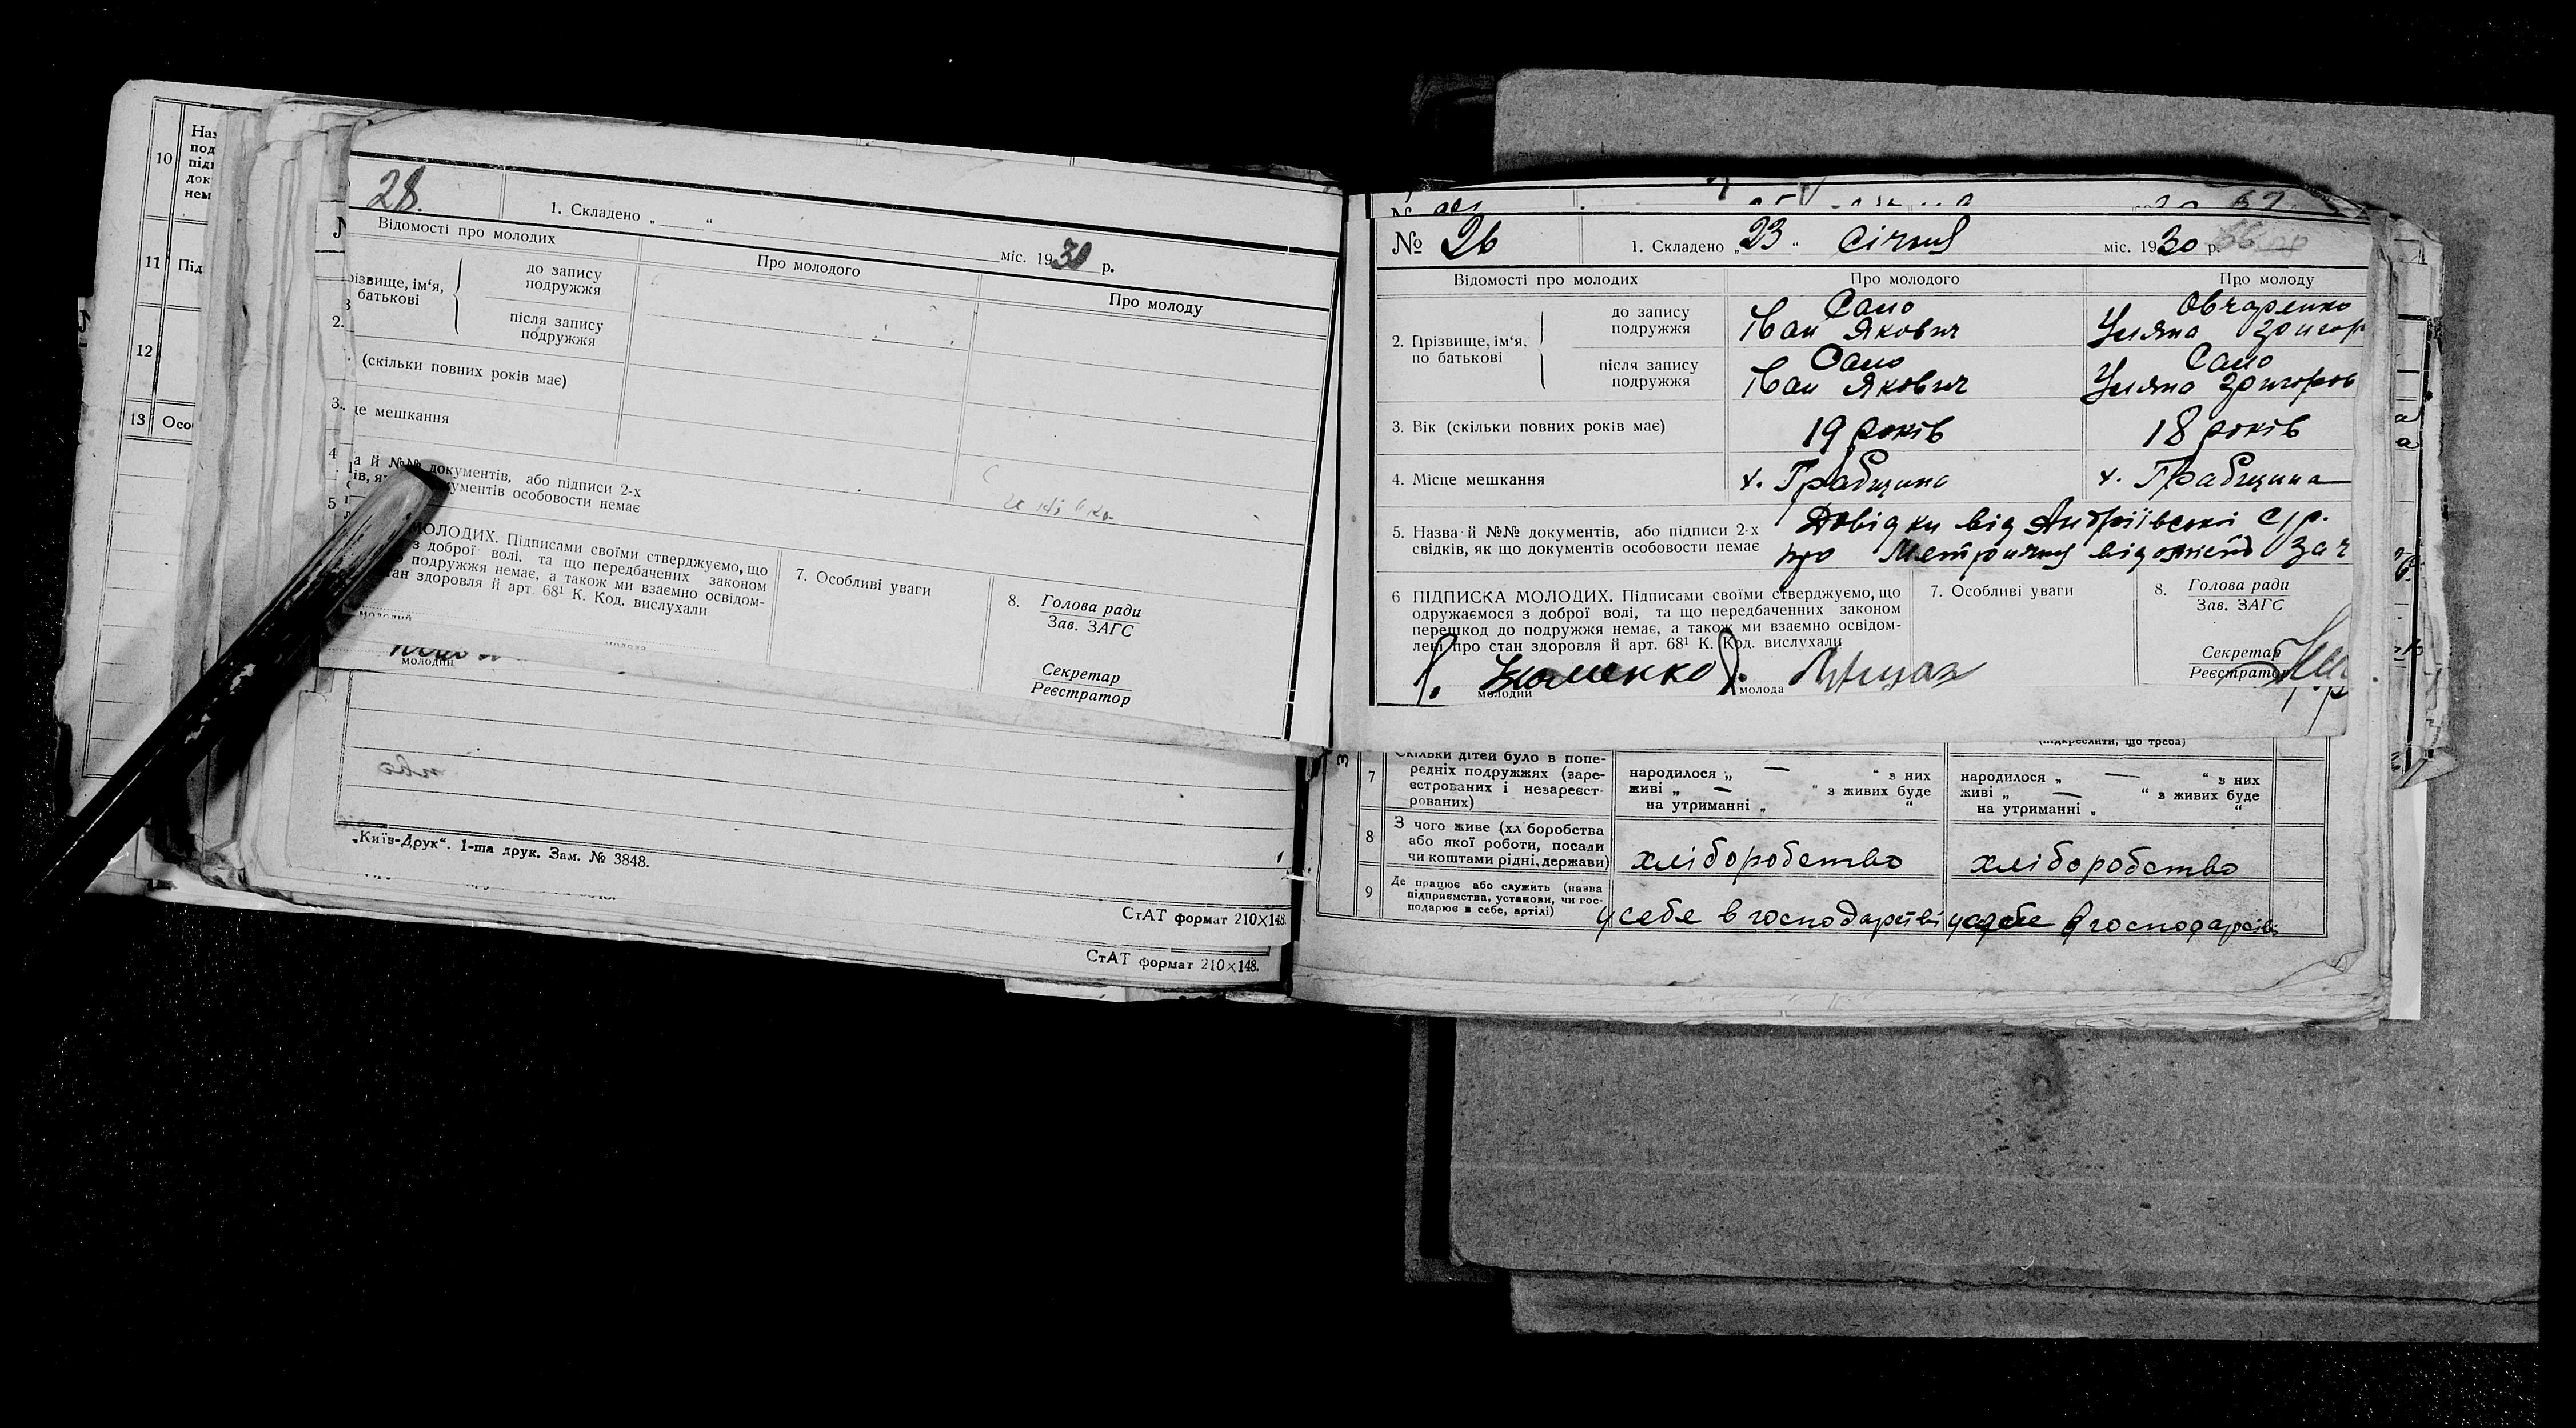 10
На
под
підп
док
нем
11 Під
12
13 Осо
28.
1. Складено „ “ міс. 1930 р.
Відомості про молодих
Про молодого
Про молоду
різвище, ім‘я, батькові
до запису подружжя
після запису подружжя
2.
(скільки повних років має)
3.
це мешкання
4
а й №№ документів, або підписи 2-х
ументів особовости немає
5
МОЛОДИХ. Підписами своїми стверджуємо, що
з доброї волі, та що передбачених законом
подружжя немає, а також ми взаємно освідом-
тан здоровля й арт. 68¹ К. Код. вислухали
молодий
молода
7. Особливі уваги
8. Голова ради
Зав. ЗАГС
Секретар
Реєстратор
молодий
„Київ-Друк“. 1-ша друк. Зам. № 3848.
СтАТ формат 210×148.
СтАТ формат 210×148.
№ 26
1. Складено „23“ Січня міс. 1930 р.
Відомості про молодих
Про молодого
Про молоду
2. Прізвище, ім‘я, по батькові
до запису подружжя
Сано
Іван Якович
Овчаренко
Уляна Григор
після запису подружжя
Сано
Іван Якович
Сано
Уляна Григоров
3. Вік (скільки повних років має)
19 років
18 років
4. Місце мешкання
х. Грабщина
х. Грабщина
5. Назва й №№ документів, або підписи 2-х
свідків, як що документів особовости немає
Довідки від Андріївської с/р.
про Метричну відомість за
6 ПІДПИСКА МОЛОДИХ. Підписами своїми стверджуємо, що
одружаємося з доброї волі, та що передбаченних законом
перешкод до подружжя немає, а також ми взаємно освідом-
лені про стан здоровля й арт. 68¹ К. Код. вислухали
молодий
молода
7. Особливі уваги
8. Голова ради
Зав. ЗАГС
Секретар
Реєстратор
(підкреслити, що треба)
7 Скільки дітей було в попе-
редніх подружжях (заре-
єстрованих і незареєст-
рованих)
народилося „ — “ з них
живі „ — “ з живих буде
на утриманні „ “
народилося „ — “ з них
живі „ — “ з живих буде
на утриманні „ “
8 З чого живе (хліборобства
або якої роботи, посади
чи коштами рідні, держави)
хліборобство
хліборобство
9 Де працює або служить (назва
підприємства, установи, чи гос-
подарює в себе, артілі)
у себе в господарстві
у себе в господарстві